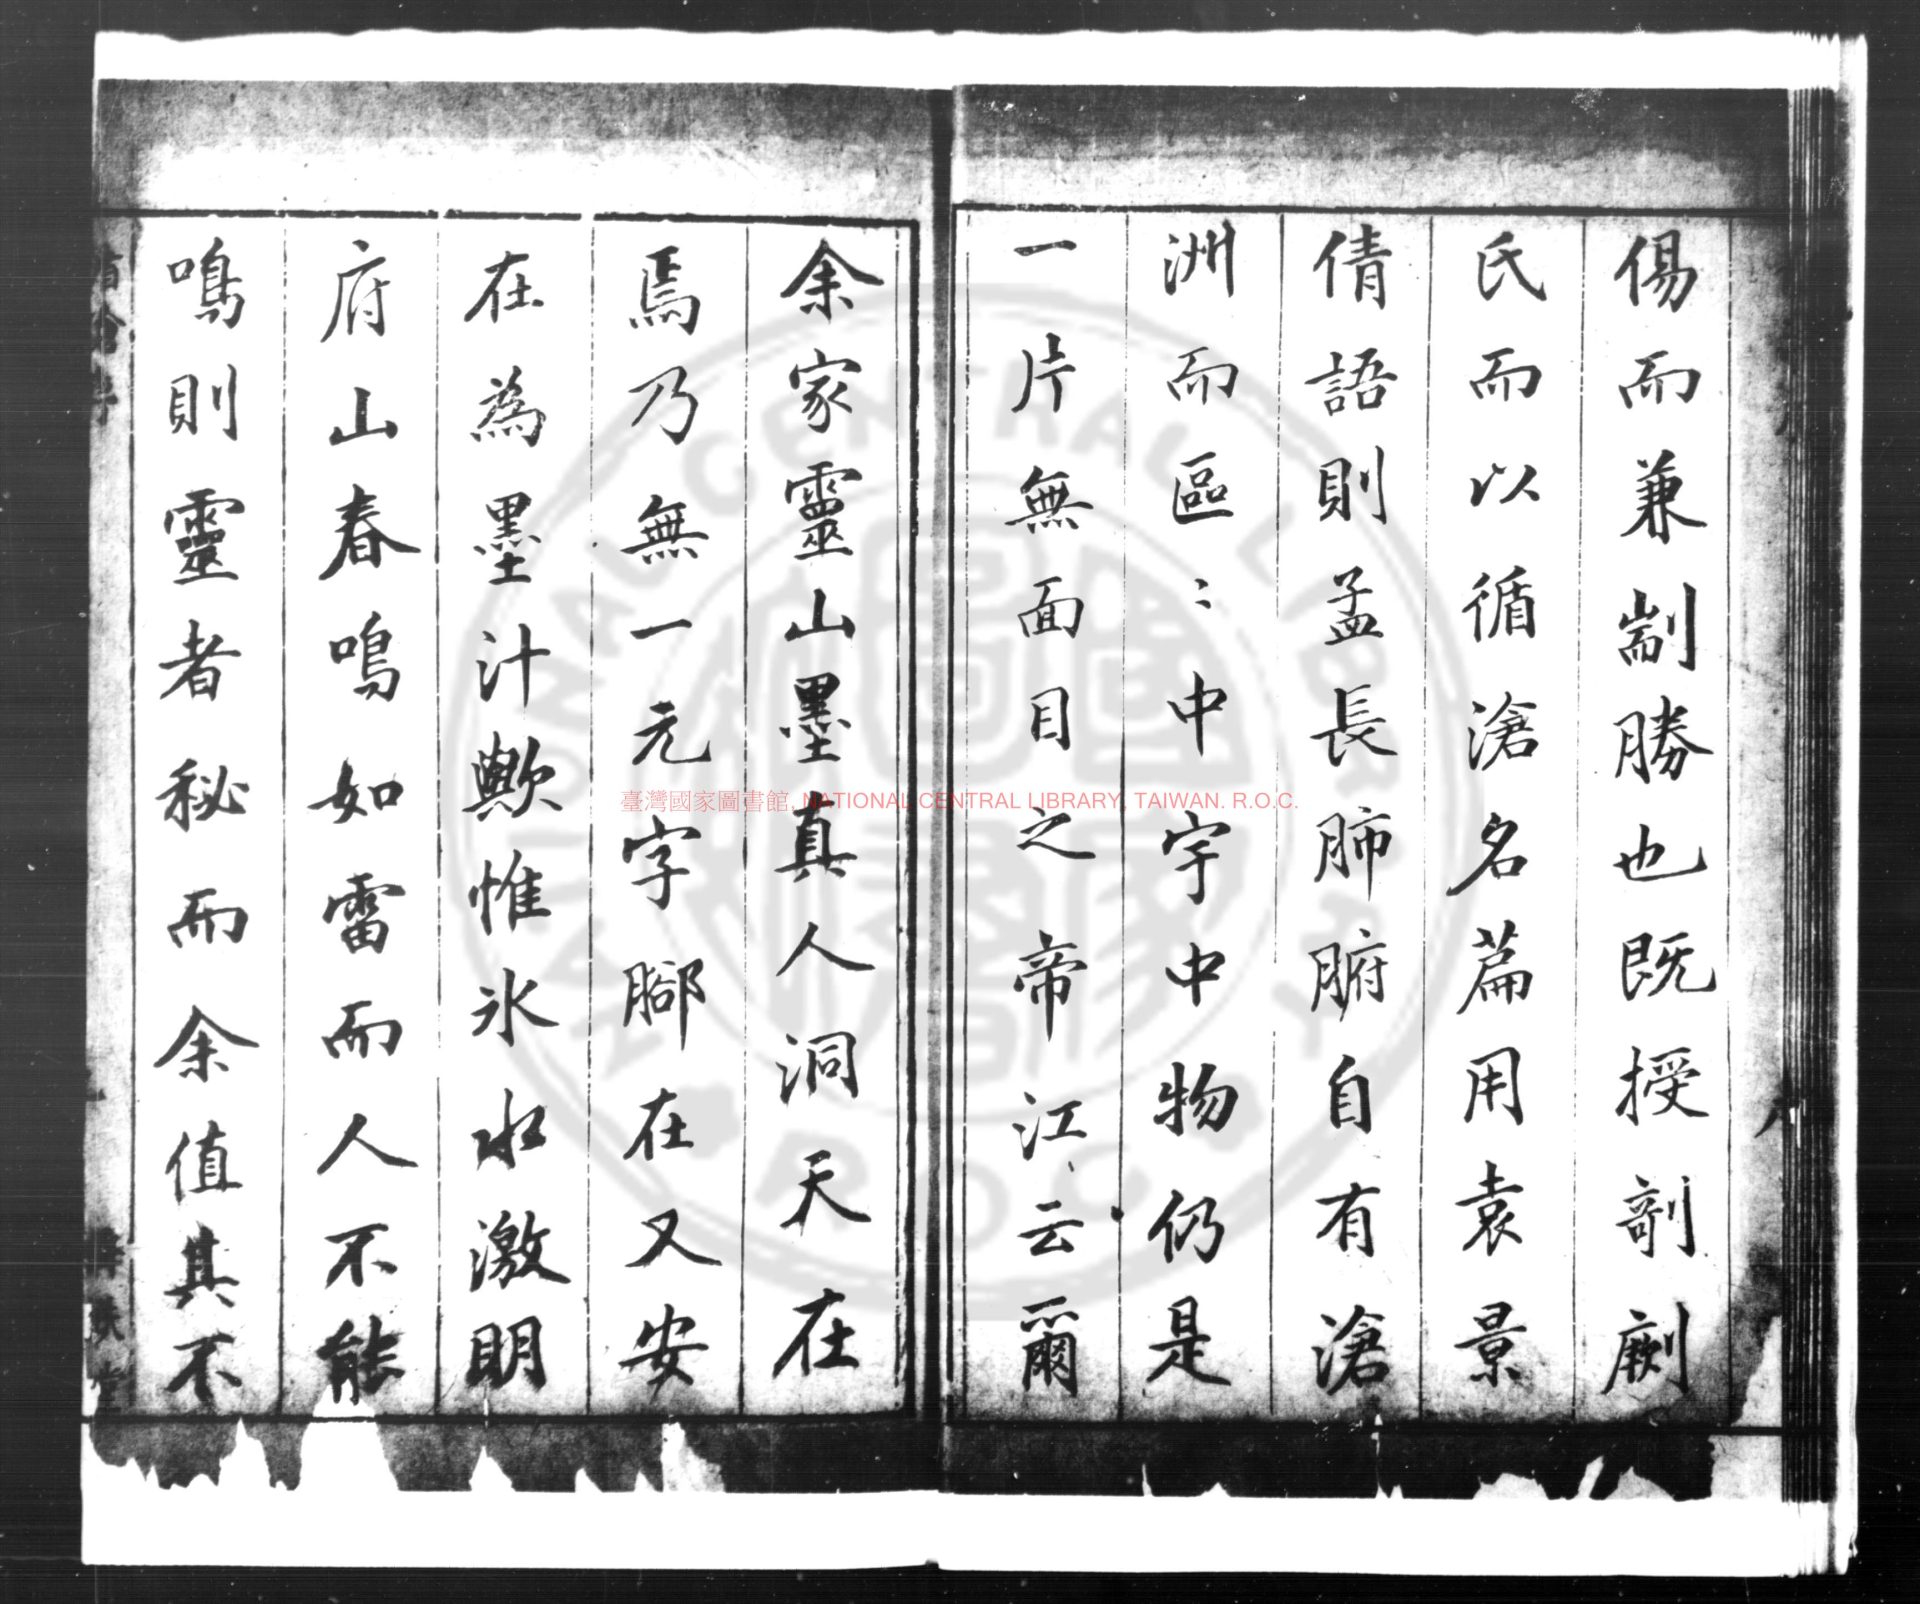 傷而兼剬勝也既授剞劂
氏而以循滄名篇用袁景
倩語則孟長肺腑自有滄
洲而區〻中宇中物仍是
一片無面目之帝江云爾
余家靈山墨真人洞天在
焉乃無一元字腳在又安
在為墨汁歟惟氷水激明
府山春鳴如雷而人不能
鳴則靈者秘而余值其不
臺灣國家圖書館, NATIONAL CENTRAL LIBRARY, TAIWAN. R.O.C.
NATIONAL CENTRAL LIBRARY
R.O.C.